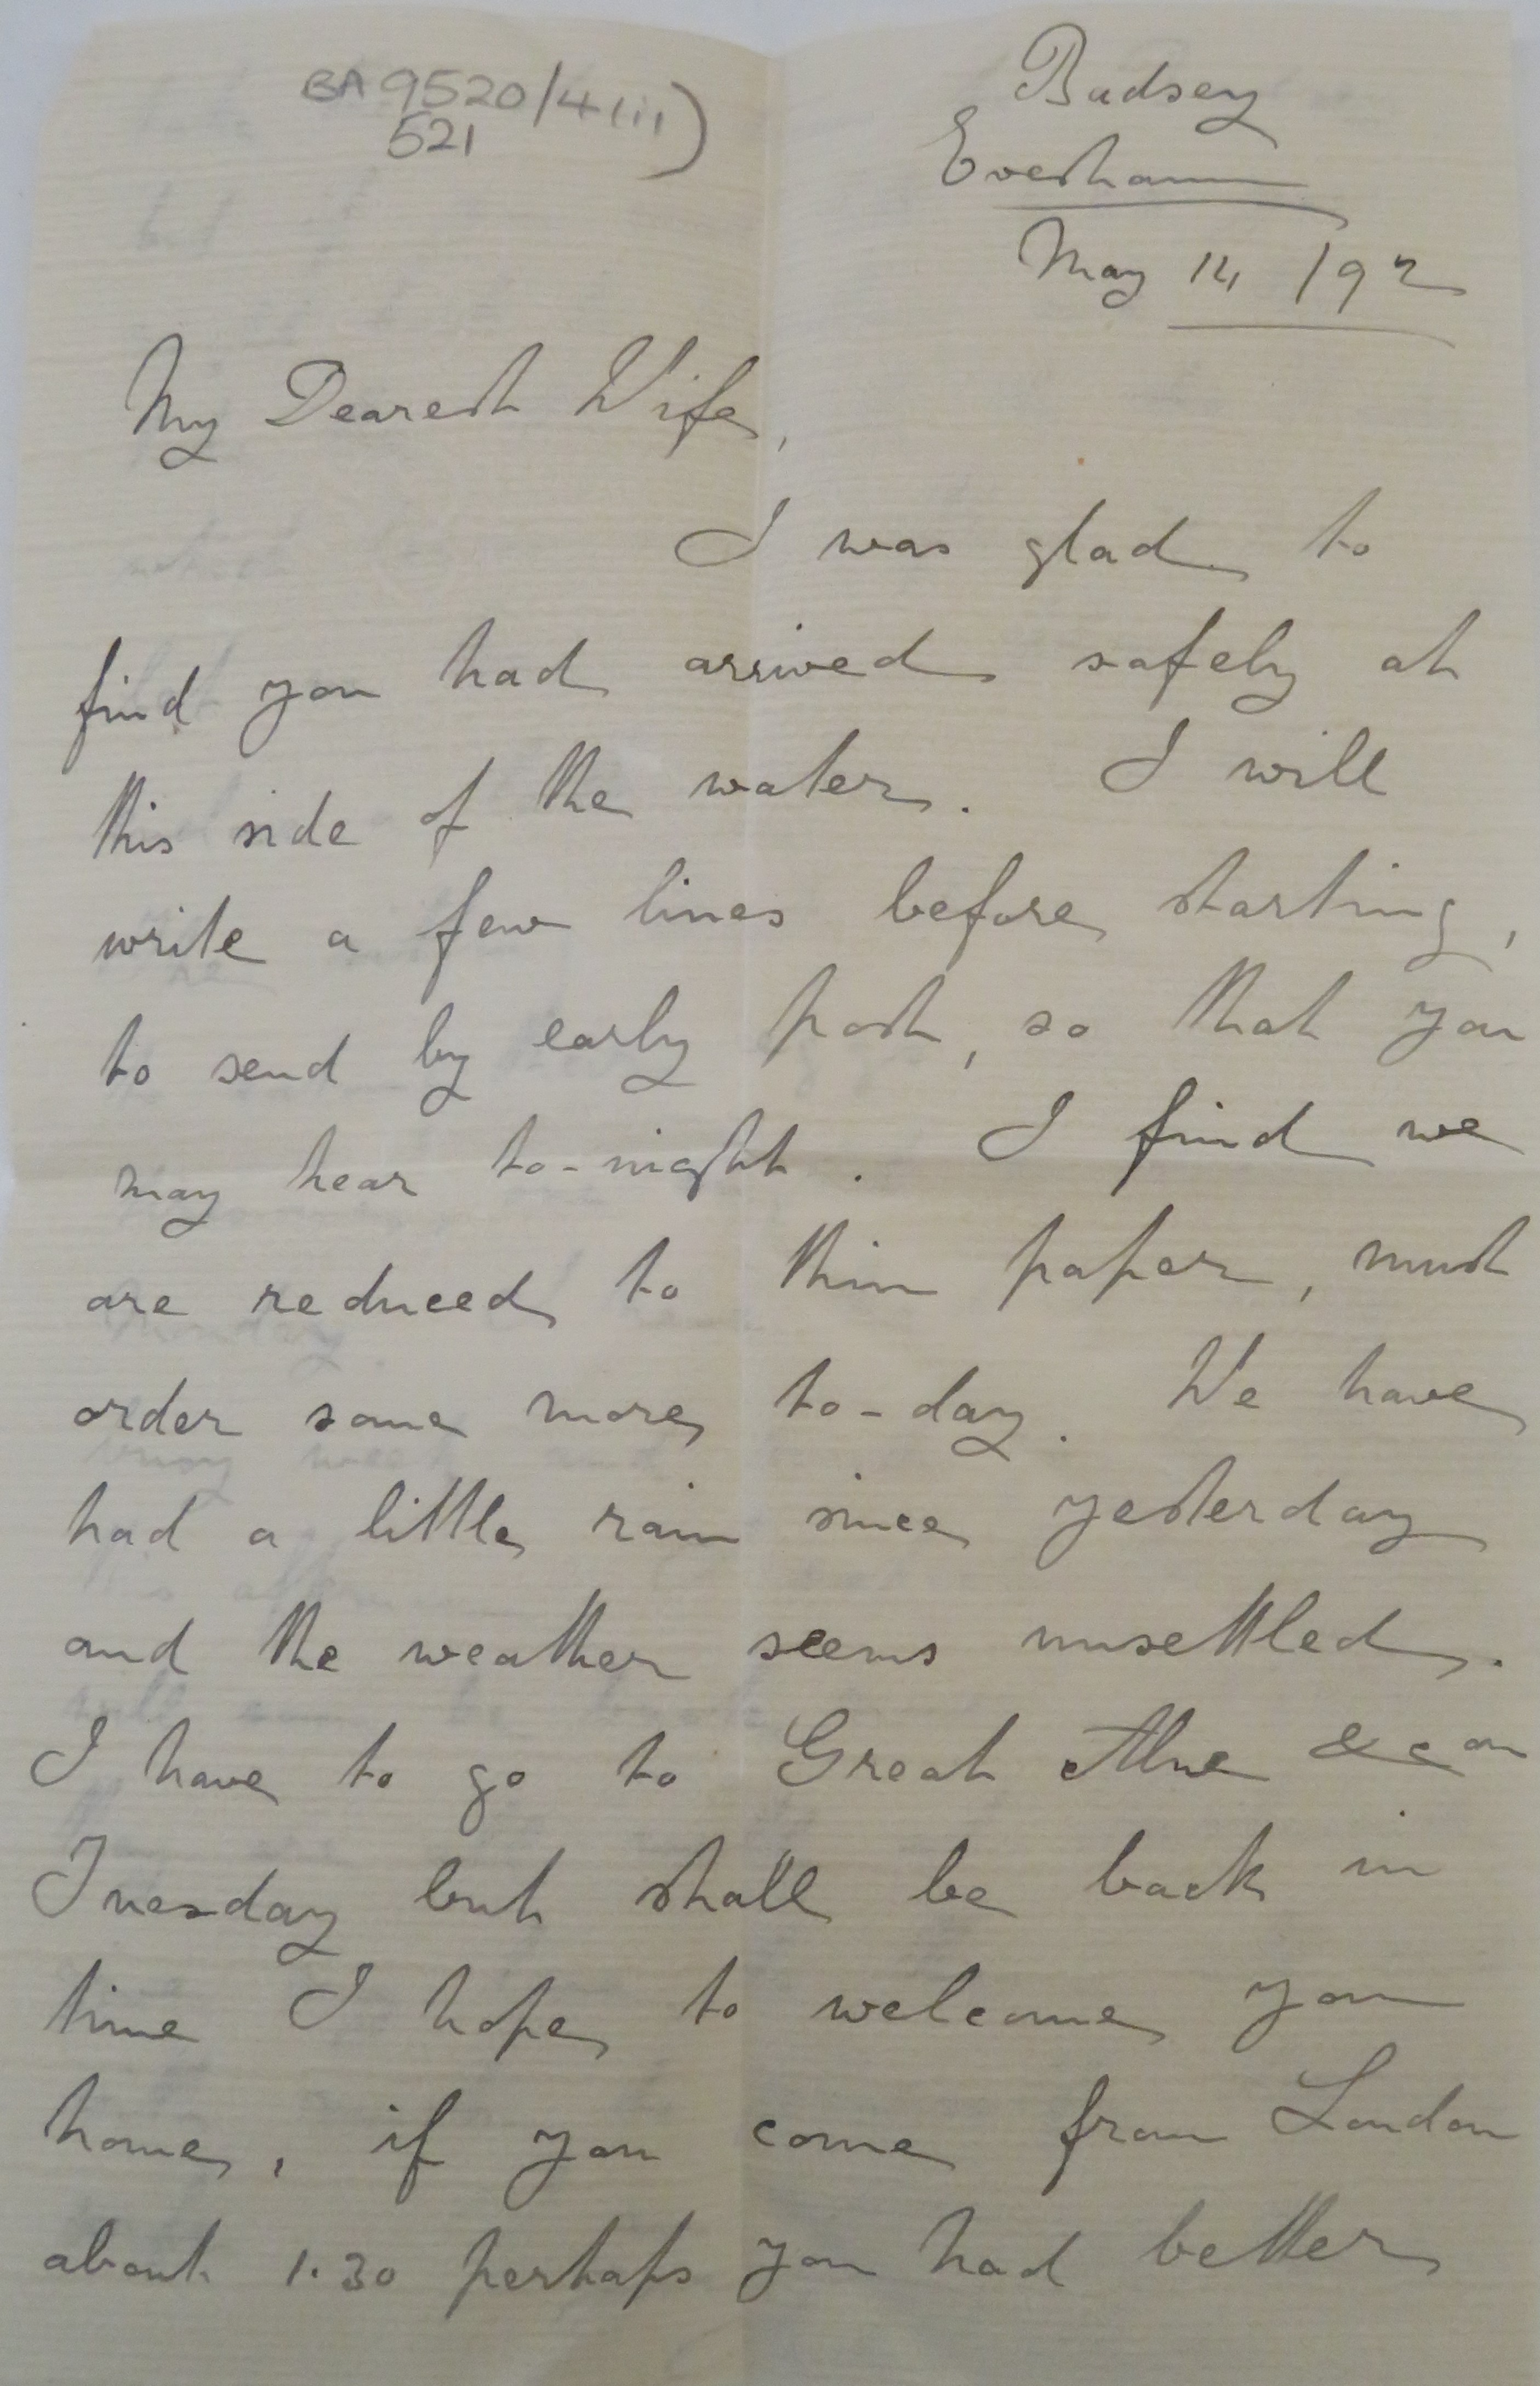 BA 9520/4(iii)
521
Badsey
Evesham
May 14 /92
My Dearest Wife,
I was glad to
find you had arrived safely at
this side of the water. I will
write a few lines before starting,
to send by early post, so that you
may hear to-night. I find we
are reduced to thin paper, must
order some more to-day. We have
had a little rain since yesterday
and the weather seems unsettled.
I have to go to Great Alne &c on
Tuesday but shall be back in
time I hope to welcome you
home, if you come from London
about 1.30 perhaps you had better